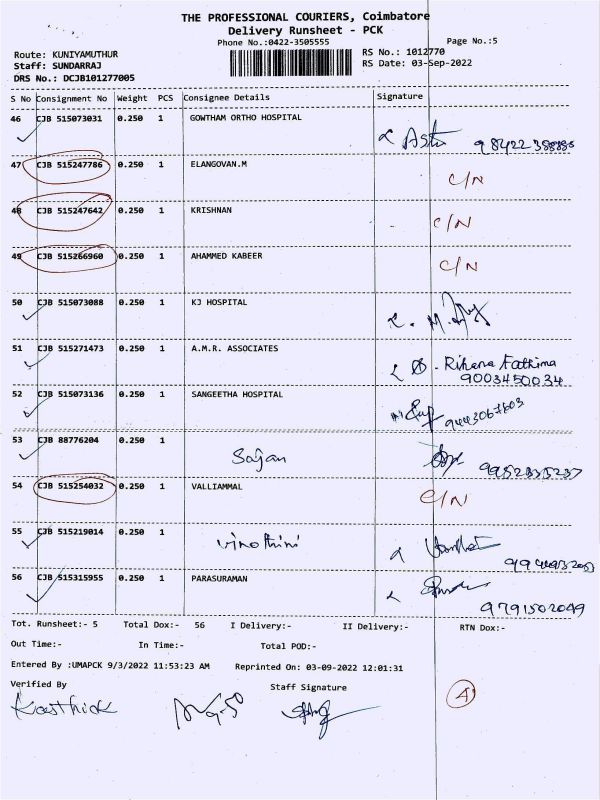 THE PROFESSIONAL COURIERS, Coimbatore
Delivery Runsheet - PCK
Phone No.:0422-3505555
Page No.:5
Route: KUNIYAMUTHUR
RS No.: 1012770
Staff: SUNDARRAJ
RS Date: 03-Sep-2022
DRS No.: DCJB101277005
S No Consignment No Weight PCS Consignee Details Signature
46 CJB 515073031 0.250 1 GOWTHAM ORTHO HOSPITAL
47 CJB 515247786 0.250 1 ELANGOVAN.M C/N
48 CJB 515247642 0.250 1 KRISHNAN C/N
49 CJB 515266960 0.250 1 AHAMMED KABEER C/N
50 CJB 515073088 0.250 1 KJ HOSPITAL
51 CJB 515271473 0.250 1 A.M.R. ASSOCIATES Rihana Fathima
9003450034
52 CJB 515073136 0.250 1 SANGEETHA HOSPITAL 9443067603
53 CJB 88776204 0.250 1
Sajan
54 CJB 515254032 0.250 1 VALLIAMMAL C/N
55 CJB 515219014 0.250 1
vinothini
56 CJB 515315955 0.250 1 PARASURAMAN
9791502049
Tot. Runsheet:- 5 Total Dox:- 56 I Delivery:- II Delivery:- RTN Dox:-
Out Time:- In Time:- Total POD:-
Entered By :UMAPCK 9/3/2022 11:53:23 AM Reprinted On: 03-09-2022 12:01:31
Verified By Staff Signature
Karthick